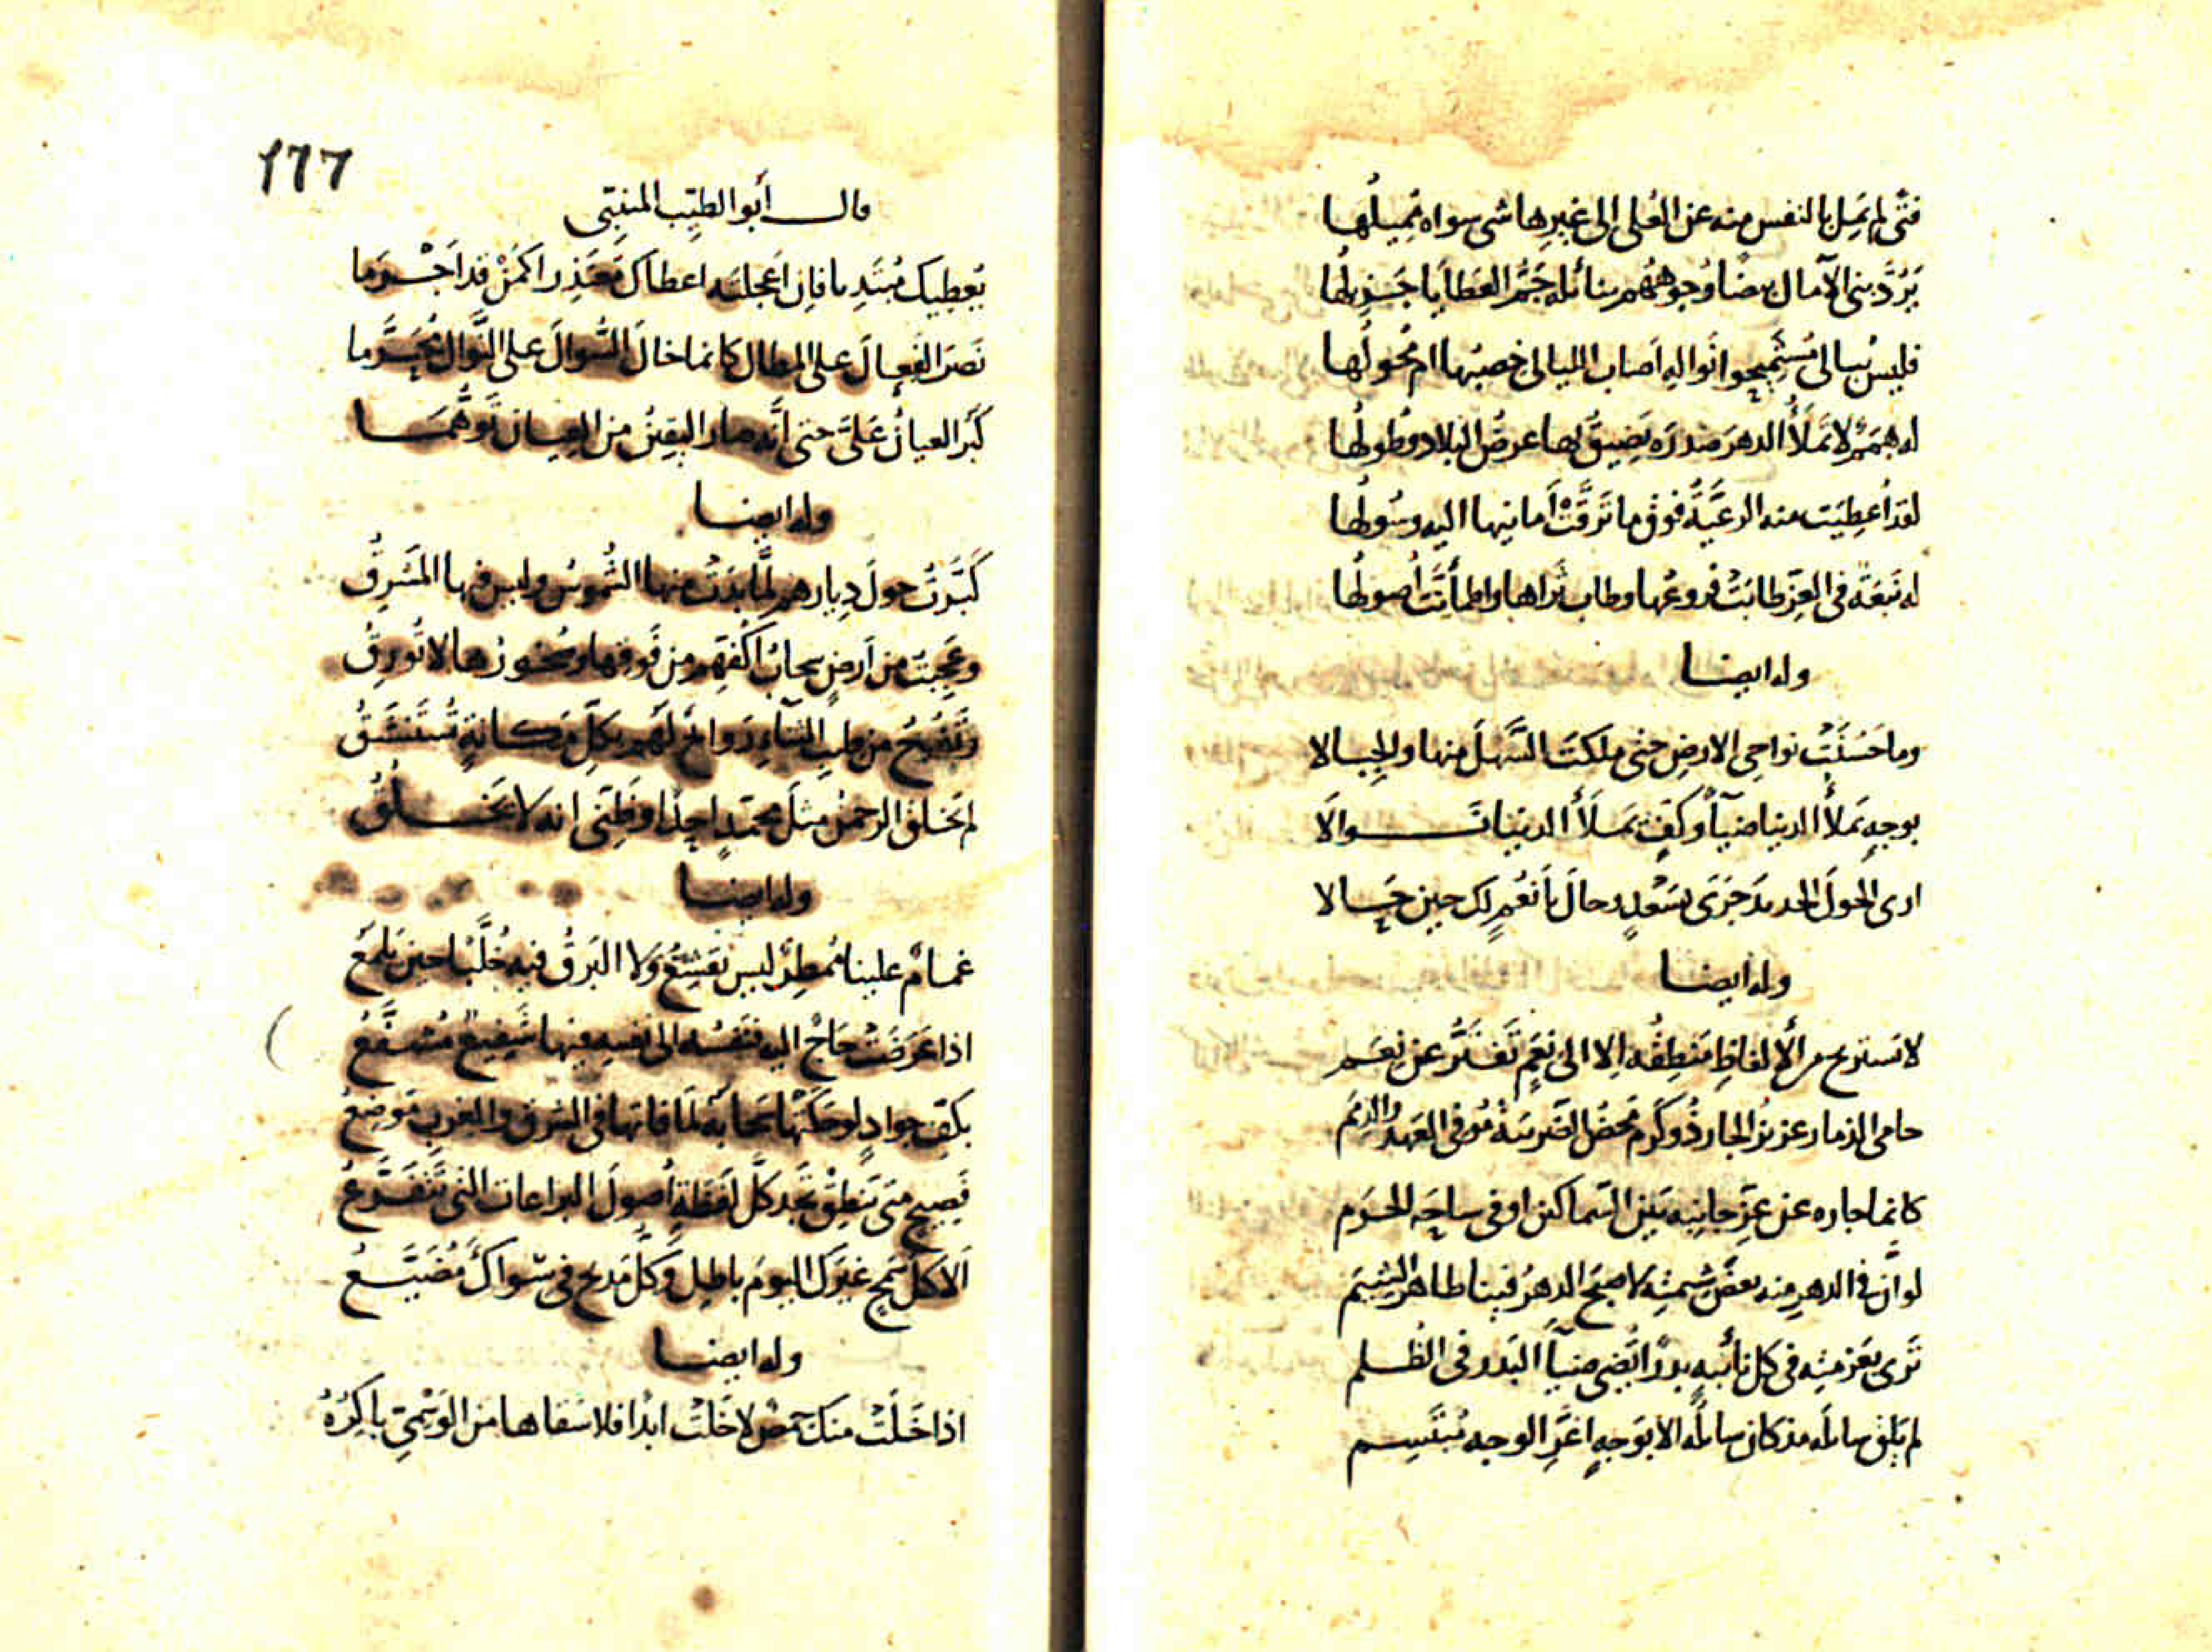 فتى لم تمل بالنفس منه عن العلى الى غيرها شى سواه تميلها
يرد بنى الآمال بيضا وجوههم بنائله جم العطايا جزيلها
فليس يبالى مستميحوا نواله اصاب الليالى خصبها ام محولها
له همم لا تملأ الدهر صدره يضيق لها عرض البلاد وطولها
لقد اعطيت منه الرعية فوق ما ترقت امانيها اليه وسولها
له نبعة فى العز طابت فروعها وطاب ثراها واطمأنت أصولها
وله ايضا
وما حسنت نواحى الارض حتى ملكت السهل منها والجبالا
بوجه تملأ الدنيا ضيآ وكف تملأ الدنيا نوالا
ارى الحول الجديد جرى بسعد وحال بأنعم لك حين حالا
وله أيضا
لا تستريح الألفاظ منطقه الا الى نعم تفتر عن نعم
حامى الذمار عزيز الجار ذو كرم محض الضريبة موفى العهد والذمم
كانما جاره عن عز جانبه بين السماكين او فى ساحه الحرم
لو أن فى الدهر منه بعض شيمته لاصبح الدهر فينا طاهر الشيم
ترى بعزمته فى كل نائبه بدرا يضى ضيآ البدر فى الظلم
لم يلق سائله مذ كان سائله الا بوجه اغر الوجه مبتسم
١٦٦
قال أبو الطيب المتنبى
يعطيك مبتديا فان اعجلته اعطاك معتذرا كمن قد اجرما
نصر الفعال على المطال كانما خال السوال على النوال محرما
كبر العيان على حتى أنه صار اليقين من العيان توهما
وله ايضا
كبرت حول ديارهم لما بدت منها الشموس وليس فيها المشرق
وعجبت من أرض سحاب اكفهم من فوقها وصخورها لا تورق
وتفوح من طيب الثنآء روائح لهم بكل مكانة تستنشق
لم يخلق الرحمن مثل محمد احدا وظنى انه لا يخلق
وله ايضا
غمام علينا ممطر ليس يقشع ولا البرق فيه خلبا حين يلمع
اذا عرضت حاج اليه فنفسه الى نفسه فيها شفيع مشفع
بكف جواد لو حكتها سحابة لما فاتها فى الشرق والغرب موضع
فصيح متى ينطق تجد كل لفظة أصول البراعات التى تتفرع
ألا كل سمح غيرك اليوم باطل وكل مديح فى سواك مضيع
وله ايضا
اذا خلت منك حمص لا خلت ابدا فلا سقاها من الوسمى باكره